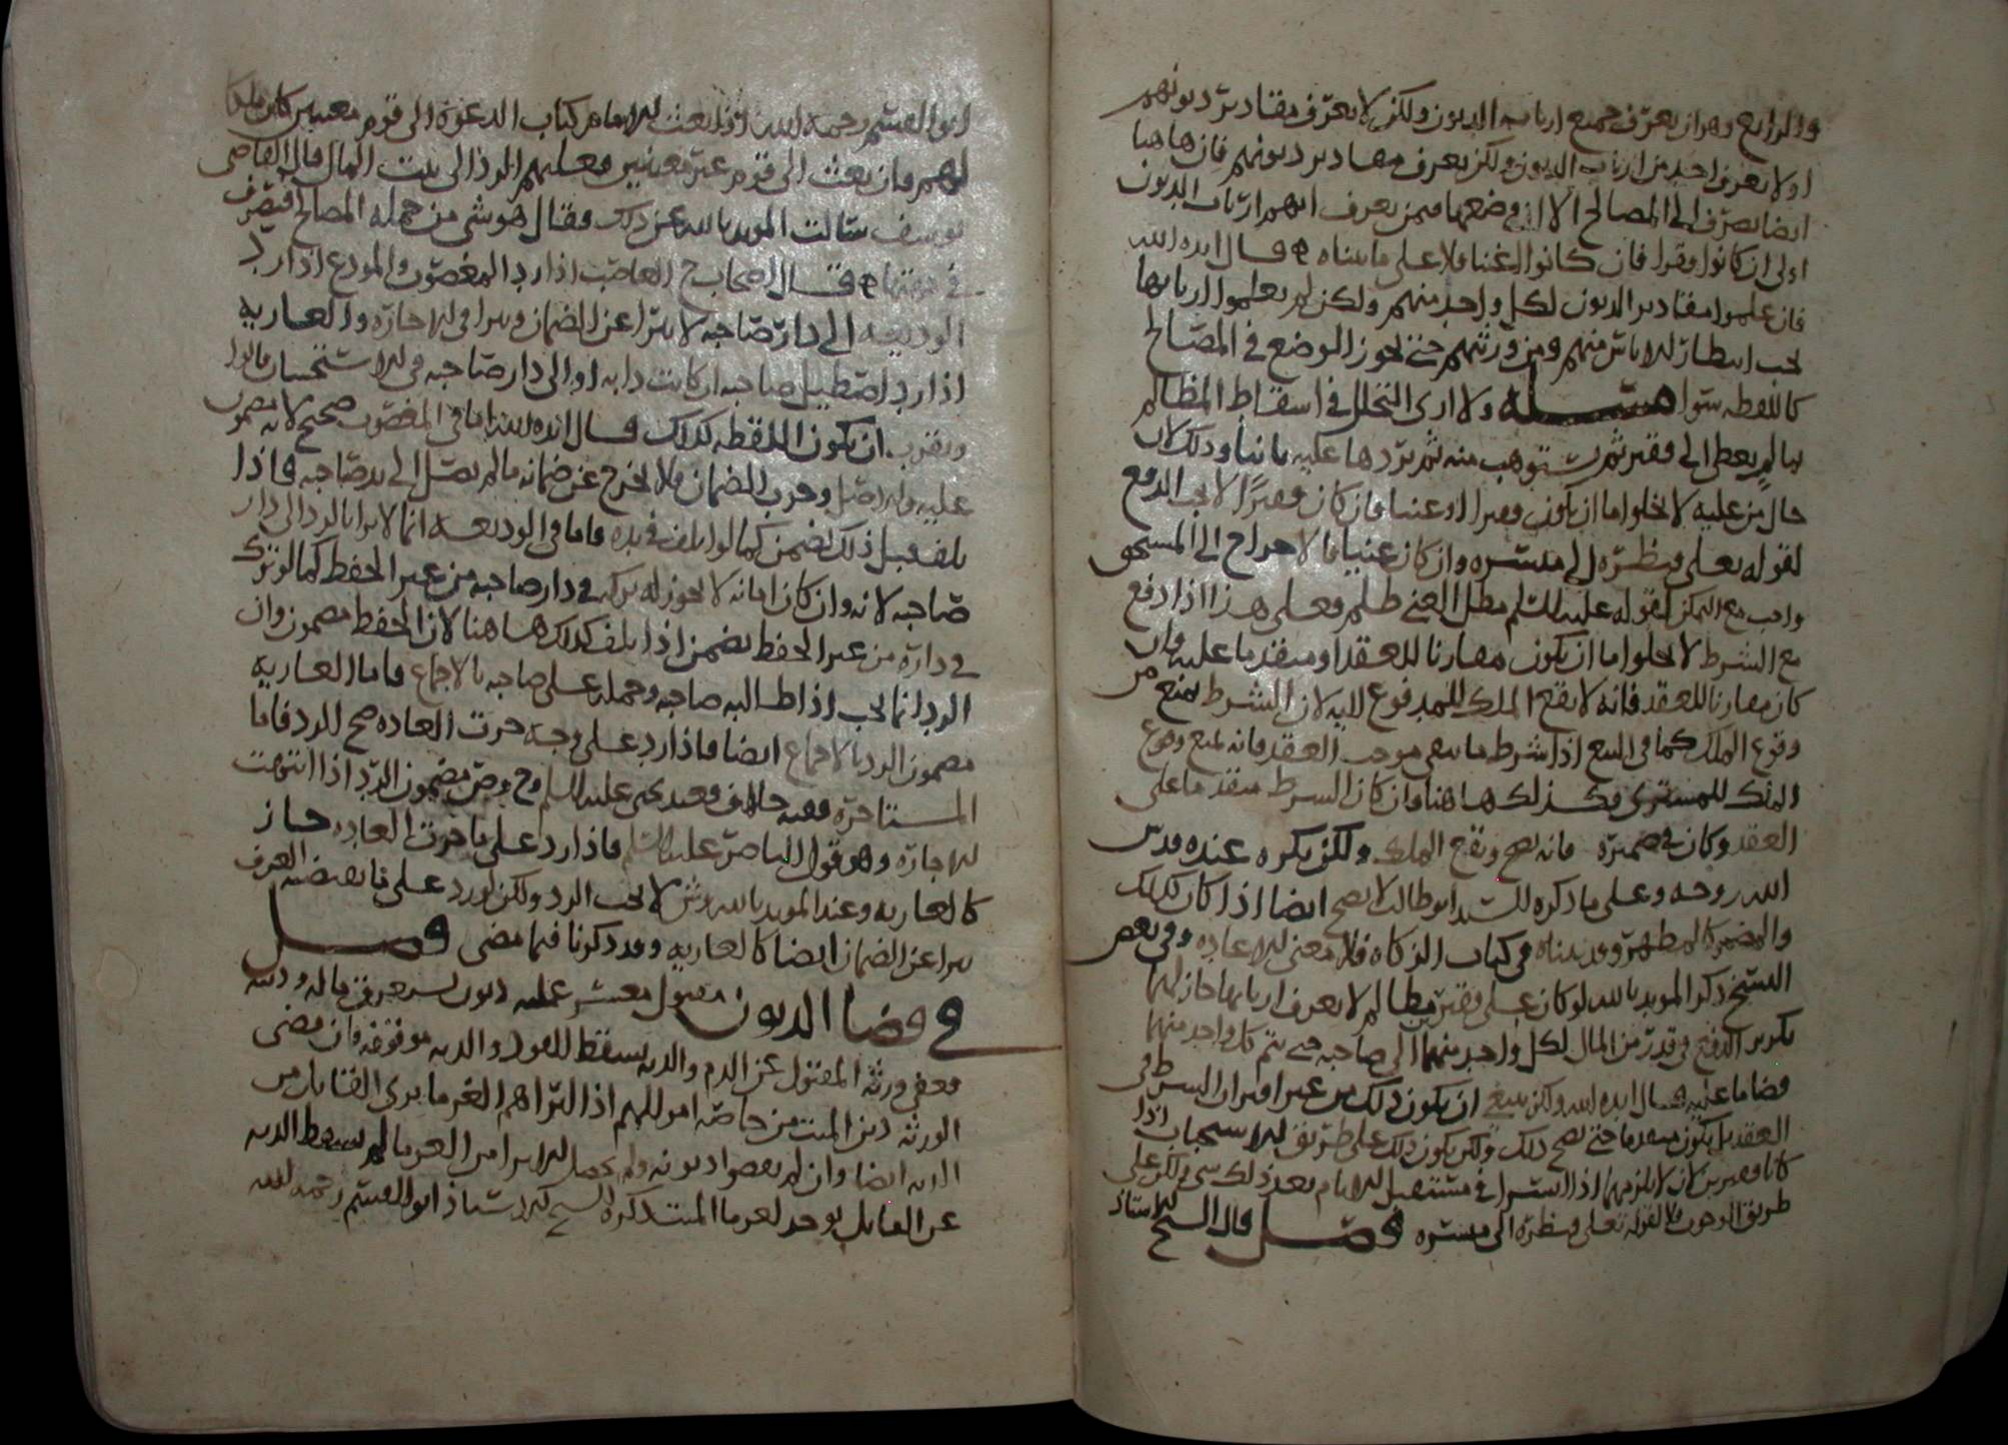 والرابع وهو ان يعرف جميع ارباب الديون ولكن لا يعرف مقادير ديونهم
او لا يعرف احد من ارباب الديون ولكن يعرف مقادير ديونهم فان هاهنا
ايضا يصرف الى المصالح الا ان وضعها فيمن يعرف انهم ارباب الديون
اولى ان كانوا فقرا فان كانوا اغنيا فلا على ما بيناه قال ايده الله
فان علموا مقادير الديون لكل واحد منهم ولكن لم يعلموا اربابها
يجب انتظار الاياس منهم ومن ورثتهم حتى يجوز الوضع في المصالح
كاللقطه سوا مسئلة ولا ارى التحلل في اسقاط المظالم
بما لم يعطى الى فقير ثم يستوهب منه ثم يردها عليه ثانيا وذلك لان
حال من عليه لا يخلوا اما ان يكون فقيرا او غنيا فان كان فقيرًا لا يجب الدفع
لقوله تعلى فنظرة الى ميسره وان كان غنيا فالاخراج الى المستحق
واجب مع التمكن لقوله عليه السلم مطل الغني ظلم فعلى هذا اذا دفع
مع الشرط لا يخلوا اما ان يكون مقارنا للعقد او متقدما عليه فان
كان مقارنا للعقد فانه لا يقع الملك للمدفوع اليه لان الشرط يمنع من
وقوع الملك كما في البيع اذا شرط ما ينفي موجب العقد فانه يمنع وقوع
الملك للمشتري فكذلك هاهنا وان كان الشرط متقدما على
العقد وكان في ضميره فانه يصح ويقع الملك ولكن يكره عنده قدس
الله روحه وعلى ما ذكره السيد ابو طالب لا يصح ايضا اذا كان كذلك
والمضمر كالمظهر وقد بيناه في كتاب الزكاه فلا معنى للاعاده وفي بعض
النسخ ذكر المويد بالله لو كان على فقير مظالم لا يعرف اربابها جاز لهما
تكرير الدفع في قدر من المال لكل واحد منهما الى صاحبه حتى يتم كل واحد منهما
قضا ما عليه قال ايده الله ولكن ينبغي ان يكون ذلك من غير اقتران الشرط في
العقد بل يكون متقدما حتى يصح ذلك ولكن يكون ذلك على طريق الاستحباب اذا
كانا فقيرين لان لا يلزمهما اذا ايسرا في مستقبل الايام بعد ذلك شي ولكن على
طريق الوجوب فلا لقوله تعلى فنظرة الى ميسره فصل قال الشيخ الاستاذ
ابو القسم رحمه الله اذا بعث الامام كتاب الدعوة الى قوم معينين كان ملكا
لهم وان بعث الى قوم غير معينين فعليهم الرد الى بيت المال قال القاضي
يوسف سالت المويد بالله عن ذلك فقال هو شي من جمله المصالح فيصرف
في قال اصحاب ح الغاصب اذا رد المغصوب والمودع اذا رد
الوديعه الى دار صاحبه لا يبرا عن الضمان ويبرا في الاجازه والعاريه
اذا رد اصطبل صاحبه ان كانت دابه او الى دار صاحبه في الاستحسان قالوا
ويقرب ان يكون اللقطه كذلك قال ايده الله اما في المغصوب صحيح لانه مضمون
عليه والاصل وجوب الضمان فلا يخرج عن ضمانه ما لم يصل الى يد صاحبه فاذا
تلف قبل ذلك يضمن كما لو تلف في يده فاما في الوديعه انما لا يبرا بالرد الى دار
صاحبه لانه وان كان امانه لا يجوز له تركه في دار صاحبه من غير الحفظ كما لو تركه
في داره من غير الحفظ يضمن اذا تلف كذلك هاهنا لان الحفظ مضمون وان
الرد انما يجب اذا طالبه صاحبه وحمله على صاحبه بالاجماع فاما العاريه
مضمون الرد بالاجماع ايضا فاذا رد على وجه جرت العاده صح الرد فاما
المستاجره ففيه خلاف فعند يحى عليه السلم و ح و ص مضمون الرد اذا انتهت
الاجاره وهو قول الناصر عليه السلم فاذا رد على ما جرت العاده جاز
كالعاريه وعند المويد بالله وش لا يجب الرد ولكن لو رد على ما يقتضيه العرف
يبرا عن الضمان ايضا كالعاريه وقد ذكرنا فيما مضى فصل
في قضا الديون مقتول معسر عليه ديون ماله وديته
فعفى ورثة المقتول عن الدم والديه يسقط القود والديه موقوفه فان قضى
الورثه دين الميت من خاصة اموالهم اذا ابراهم الغرما برى القاتل من
الديه ايضا وان لم يقضوا ديونه ولم يحصل الابرا من الغرما لم يسقط الديه
عن القاتل يوخد لغرما الميت ذكره الشيخ الاستاذ ابو القسم رحمه الله